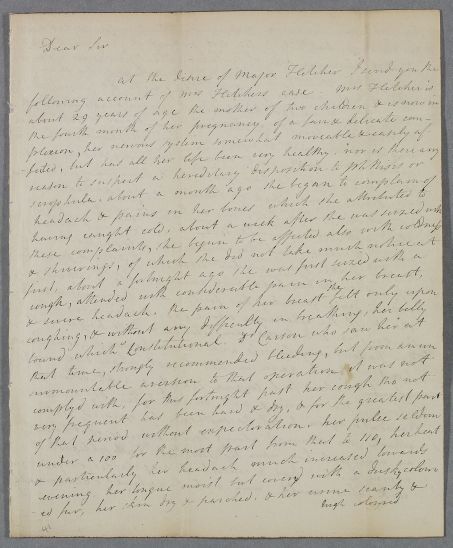 Dear Sir
at the desire of Major Fletcher I send you the
following account of Mrs Fletchers case. Mrs Fletcher is
about 29 years of age the mother of two children & is now in
the fourth month of her pregnancy of a fair & delicate com-
plexion, her nervous system somewhat moveable & easily af
fected, but has all her life been very healthy. nor is there any
reason to suspect a hereditary disposition to phthisis or
scrophula. about a month ago she began to complain of
headach & pains in her bones which she attributes to
having caught cold. about a week after she was seized with
these complaints, she began to be affected also with coldness
& shiverings, of which she did not take much notice at
first, about a fortnight ago she was first seized with a
cough, attended with considerable pain in her breast,
& severe headach. the pain of her breast she felt only upon
coughing, & without any difficulty in breathing, her belly
bound which constitutional. Dr Carson who saw her at
that time, strongly recommended bleeding, but from an un
surmountable aversion to that operation, it was not
complyd with. for this fortnight past her cough tho not
very frequent has been hard & dry, & for the greatest part
of that period without expectoration. her pulse seldom
under a 100 for the most part from that to 110, her heat
& particularly her headach much increased towards
evening her tongue moist but cover'd with a dusky colour
ed fur, her skin dry & parched. & her urine scanty &
high coloured